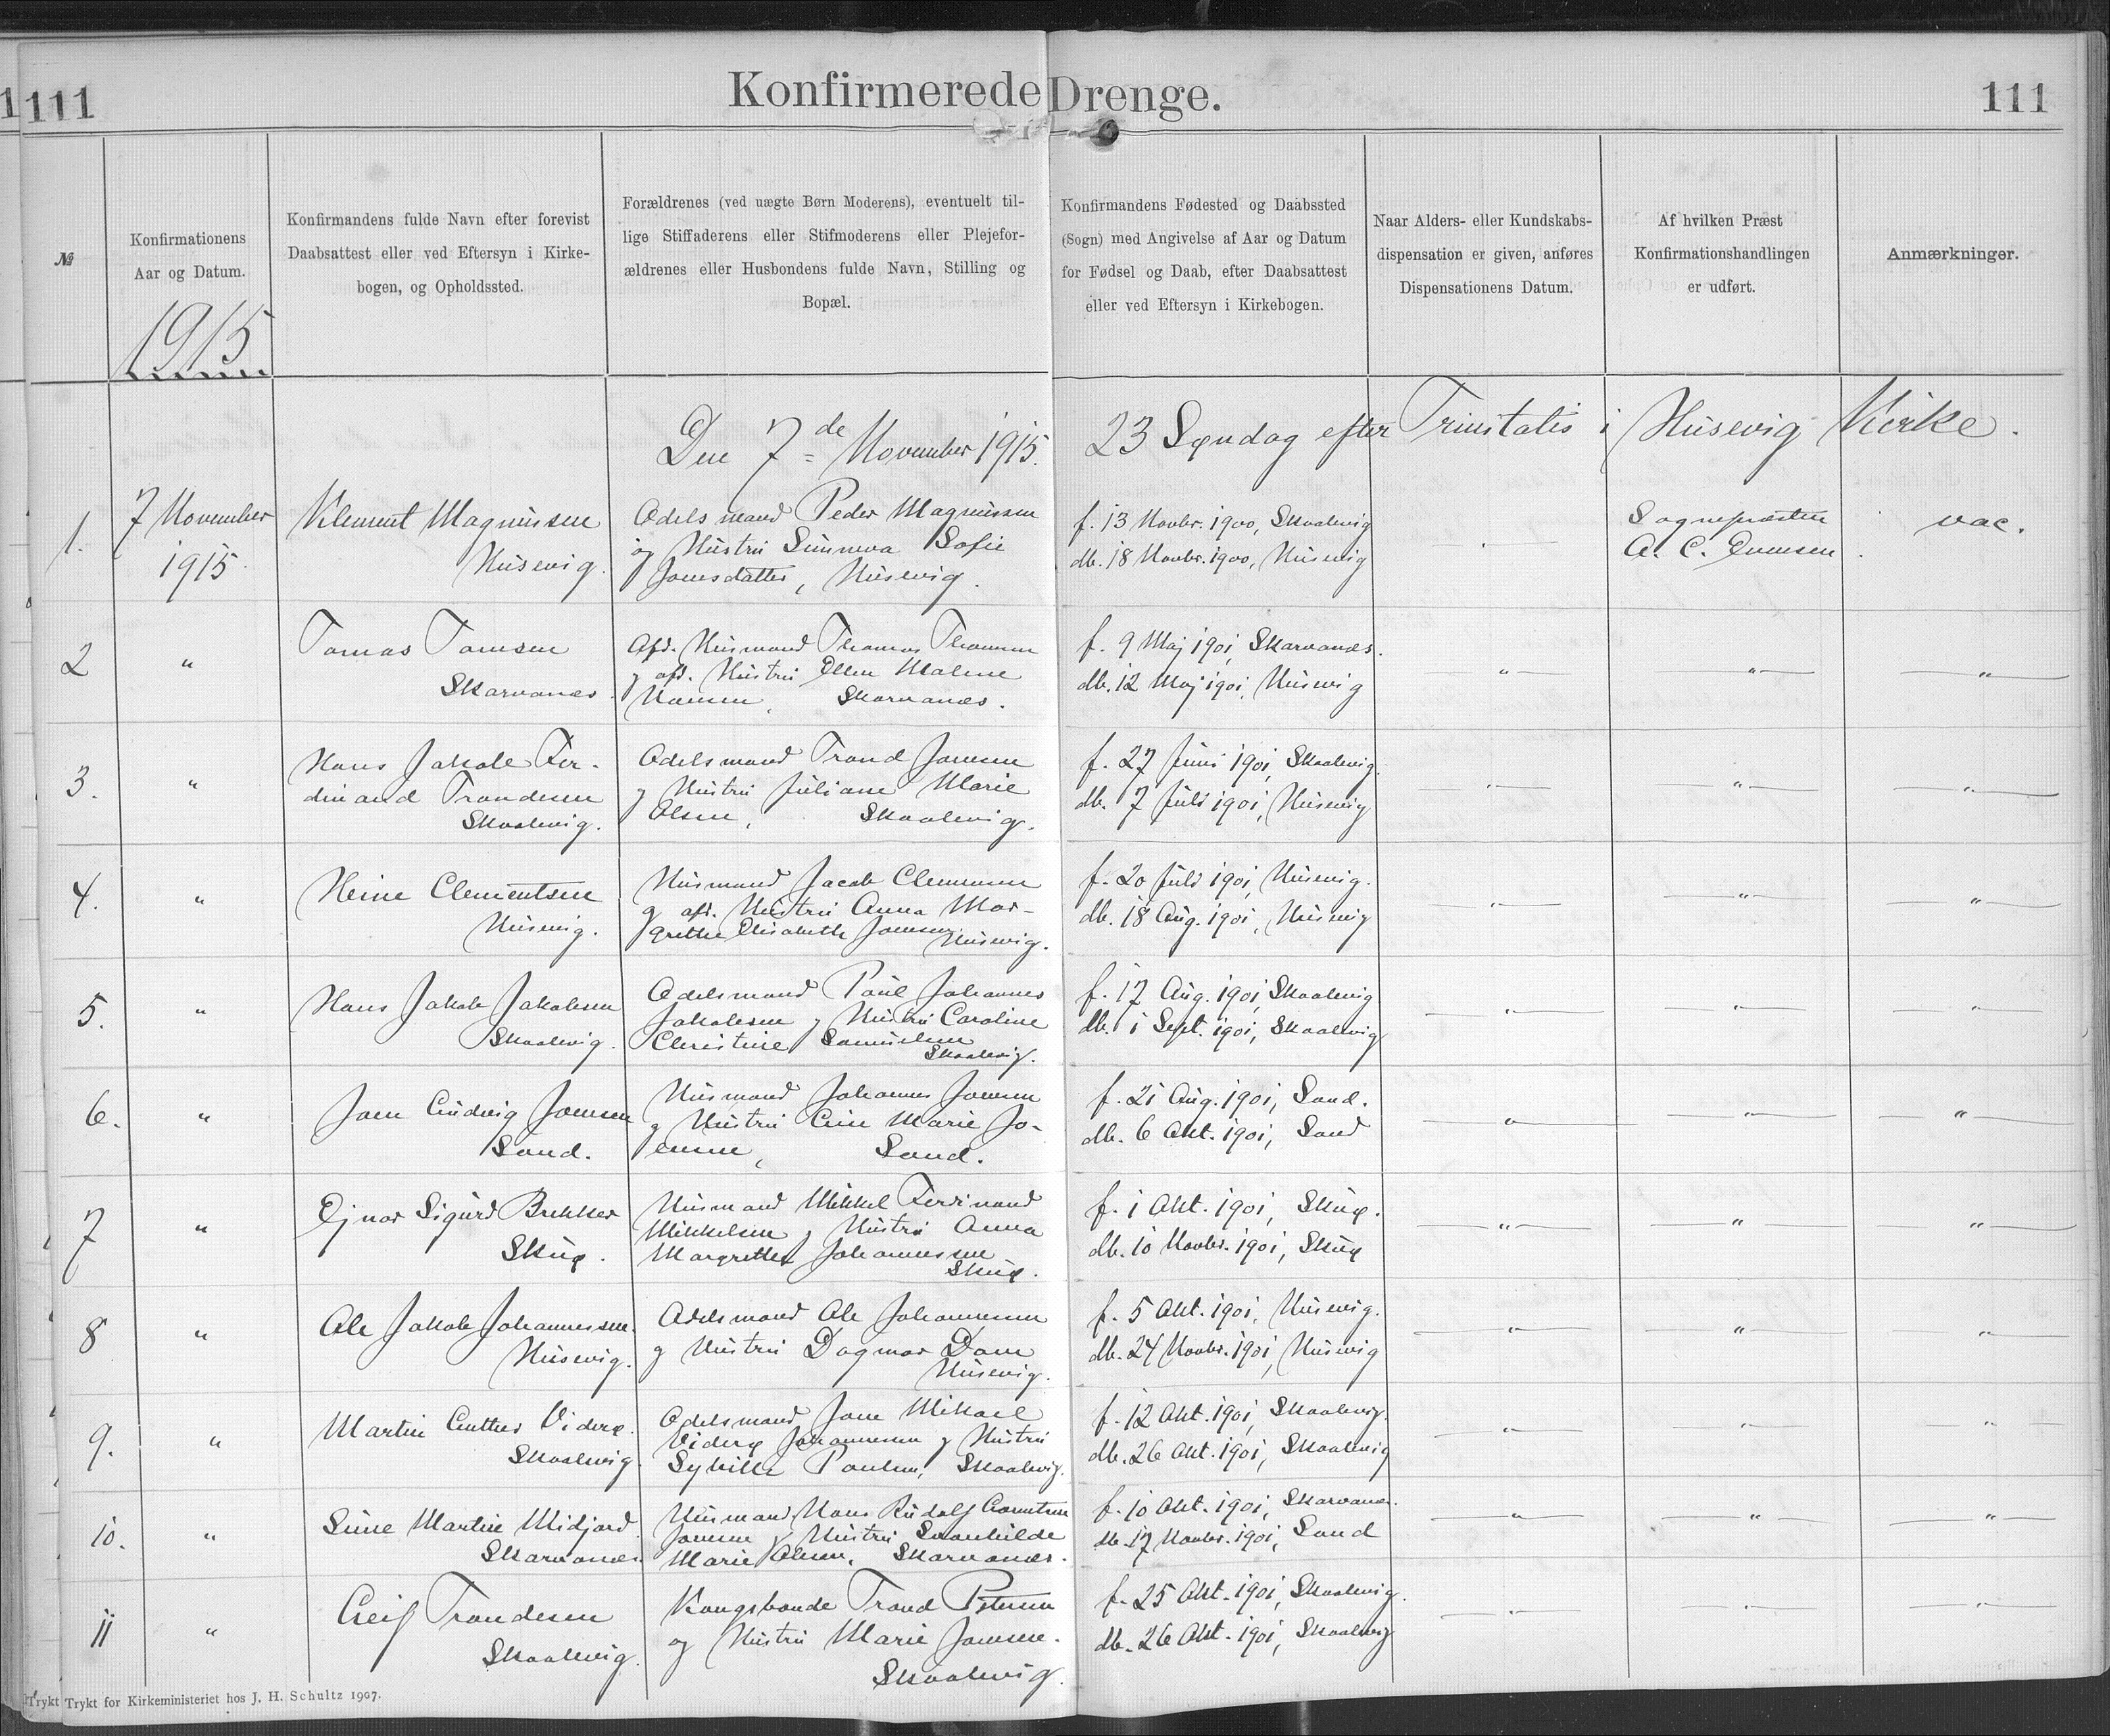 111
Konfirmerede Drenge.
111
№
Konfirmationens
Aar og Datum.
1915
Konfirmandens fulde Navn efter forevist
Daabsattest eller ved Eftersyn i Kirke-
bogen, og Opholdssted.
Forældrenes (ved uægte Børn Moderens), eventuelt til-
lige Stiffaderens eller Stifmoderens eller Plejefor-
ældrenes eller Husbondens fulde Navn, Stilling og
Bopæl.
Konfirmandens Fødested og Daabssted
(Sogn) med Angivelse af Aar og Datum
for Fødsel og Daab, efter Daabsattest
eller ved Eftersyn i Kirkebogen.
Naar Alders- eller Kundskabs-
dispensation er given, anføres
Dispensationens Datum.
Af hvilken Præst
Konfirmationshandlingen
er udført.
Anmærkninger.
Den 7de November 1915. 23 Søndag efter Trinitatis i Husevig Kirke.
1.
7 November
1915
Klement Magnussen
Husevig.
Odelsmand Peder Magnussen
og Hustru Sunneva Sofie
Jonsdatter, Husevig.
f. 13 Novbr. 1900, Skaalevig
db. 18 Novbr. 1900, Husevig
Sognepræsten
A. C. Evensen
vac.
2
"
Tomas Tomsen
Skarvanes
Afd. Husmand Thomas Thomsen
og afd. Hustru Ellen Malene
Hansen, Skarvanes.
f. 9 Maj 1901, Skarvanes.
db. 12 Maj 1901, Husevig
"
"
"
3.
"
Hans Jakob Fer-
dinand Trondesen
Skaalevig.
Odelsmand Trond Joensen
og Hustru Juliane Marie
Olsen, Skaalevig.
f. 27 Juni 1901, Skaalevig.
db. 7 Juli 1901, Husevig
"
"
"
4.
"
Heine Clementsen
Husevig.
Husmand Jacob Clemensen
og afd. Hustru Anna Mar-
grethe Elisabeth Joensen
Husevig.
f. 20 Juli 1901, Husevig.
db. 18 Aug. 1901, Husevig
"
"
"
5.
"
Hans Jakob Jakobsen
Skaalevig.
Odelsmand Poul Johannes
Jakobsen og Hustru Caroline
Christine Samuelsen
Skaalevig.
f. 17 Aug. 1901 Skaalevig
db. 1 Sept. 1901, Skaalevig
"
"
"
6.
"
Joen Ludvig Joensen
Sand.
Husmand Johannes Joensen
og Hustru Line Marie Jo-
ensen, Sand.
f. 21 Aug. 1901, Sand.
db. 6 Okt. 1901, Sand
"
"
"
7
"
Ejnar Sigurd Brekker
Skuø.
Husmand Mikkel Ferdinand
Mikkelsen og Hustru Anna
Margrethe Johannessen
Skuø.
f. 1 Okt. 1901, Skuø.
db. 10 Novbr. 1901, Skuø
"
"
"
8
"
Ole Jakob Johannessen.
Husevig.
Odelsmand Ole Johannesen
og Hustru Dagmar Dam
Husevig.
f. 5 Okt. 1901, Husevig.
db. 24 Novbr. 1901, Husevig
"
"
"
9.
"
Martin Luther Viderø.
Skaalevig
Odelsmand Jone Mikael
Viderø Johannesen og Hustru
Sybille Poulsen, Skaalevig.
f. 12 Okt. 1901, Skaalevig.
db. 26 Okt. 1901, Skaalevig
"
"
"
10.
"
Sune Martin Midjord
Skarvanes.
Husmand Hans Rudolf
Joensen og Hustru Svanhilde
Marie Olsen, Skarvanes.
f. 10 Okt. 1901, Skarvanes.
db. 17 Novbr. 1901, Sand
"
"
"
11
"
Leif Trondesen
Skaalevig.
Kongsbonde Trond Petersen
og Hustru Marie Joensen.
Skaalevig.
f. 25 Okt. 1901, Skaalevig.
db. 26 Okt. 1901, Skaalevig
"
"
"
Trykt Trykt for Kirkeministeriet hos J. H. Schultz 1907.